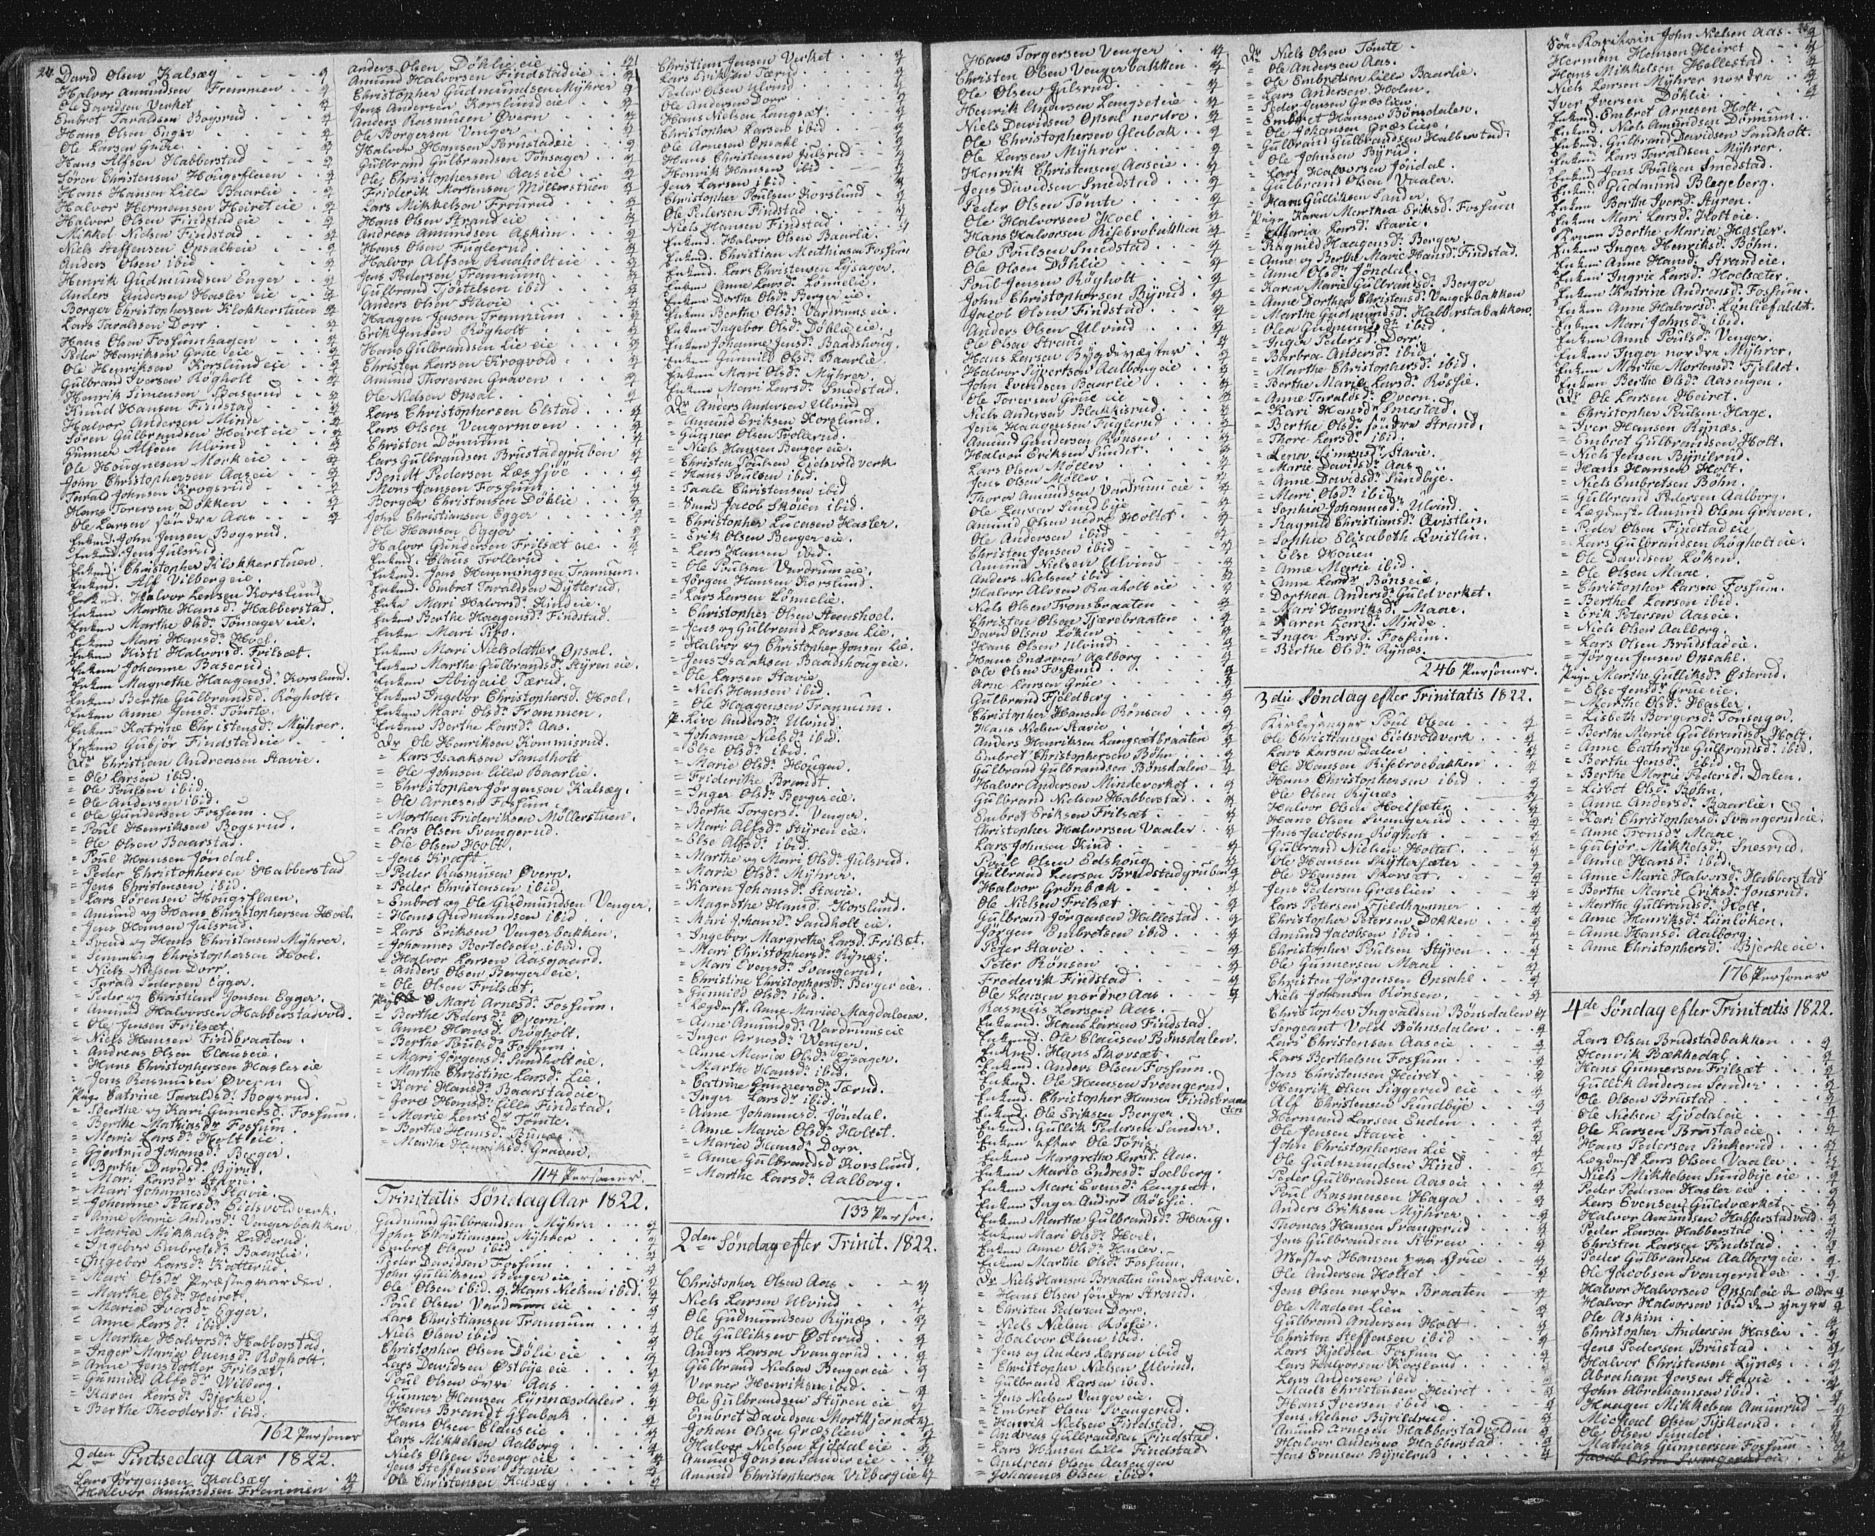 24.
David Olsen Kalsæg
Halvor Amundsen Fremmen
Ole Davidsen Verket
Embret Taraldsen Bogsrud
Hans Olsen Enger
Ole Larsen Grue
Hans Alfsen Habberstad
Sören Christensen Hougsflaen
Hans Hansen Lille Baarlie
Halvor Hermansen Heiret eie
Halvor Olsen Findstad eie
Mikkel Nielsen Findstad
Niels Steffensen Opsaleie
Anders Olsen ibid
Henrik Gudmundsen Enger
Anders Andersen Hasler eie
Borger Christophersen Klokkerstuen
Lars Taraldsen Dorr
Hans Olsen Fossumhagen
Peder Henriksen Grue eie
Ole Henriksen Korslund eie
Gulbrand Iversen Røgholt
Henrik Simensen Baserud
Knud Hansen Findstad
Halvor Andersen Minde
Søren Gulbrandsen Heiret eie
Gunner Alfsen Ulvind
Ole Hougnesen Mork eie
John Christophersen Aaseie
Tarald Johnsen Krogsrud
Hans Torersen Døkken
Ole Larsen søndre Aas
Enkmd. John Jensen Bogsrud.
Enkmd. Jens Julsrud.
Enkmd. Christopher Klokkerstuen.
Enkmd. Alf Vilberg eie.
Enkmd. Halvor Larsen Korslund
Enken Marthe Hansd. Habberstad.
Enken Marthe Olsd. Tonsager eie.
Enken Mari Hansd. Hoel.
Enken Kisti Halvorsd. Frilsæt.
Enken Johanne Baserud.
Enken Magrethe Haagensd. Korslund.
Enken Berthe Gulbrandsd. Røgholt.
Enken Anne Jensd. Tømte.
Enken Katrine Christensd. Myhrer.
Enken Gubjør Findstad eie.
Dr Christian Andreasen Stavie.
= Ole Larsen ibid.
= Ole Poulsen ibid.
= Ole Andersen ibid.
= Ole Gundersen Fossum.
= Poul Henriksen Bogsrud.
= Ole Olsen Baarstad.
= Poul Hansen Jøndal.
= Peder Christophersen Habberstad
= Jens Christensen ibid.
= Lars Sørensen Hougsflaen.
= Amund og Hans Christophersen Hoel.
= Jens Hansen Julsrud.
= Svend og Hans Christensen Myhrer.
= Christophersen Hoel.
= Niels Nielsen Dorr.
= Tarald Pedersen Egger.
= Peder og Christian Jonsen Egger.
= Amund Halvorsen Habberstadvold.
= Ole Jensen Frilsæt.
= Niels Hansen Findbraaten.
= Andreas Olsen Clauseie.
= Hans Christophersen Hasler eie.
= Jens Rasmusen Øvern.
Pige Catrine Taraldsd. Bogsrud.
= Berthe og Kari Gunnersd. Fossum.
= Berthe Mathiasd. Fossum.
= Marie Larsd. Holt eie.
= Giertrud Johansd. Berger.
= Berthe Davidsd. Byrud.
= Mari Larsd. Stavie.
= Mari Johannesd. Stavie.
= Johanne Pedersd. Eidsvoldverk.
= Anne Marie Andersd. Vengerbakken
= Marie Mikkelsd. Lodderud.
= Ingebor Embretsd. Baarlie.
= Ingebor Larsd. Katterud.
= Mari Olsd. Præstegaarden.
= Marthe Olsd. Heiret.
= Maria Iversd. Egger.
= Anne Larsd. ibid.
= Marthe Halvorsd. Habberstad.
= Inger Maria Evensd. Røgholt.
= Anne Jensdatter Frilsæt.
= Gunnild Alfsd. Wilberg.
= Karen Larsd. Bjerke.
= Berthe Theodorsd. ibid.
162 Personer
2den Pintsedag Aar 1822.
Lars Jörgensen Kalsæg
Halvor Amundsen Fremmen
Anders Olsen Döhlie eie
Amund Halvorsen Findstad eie
Christopher Gudmundsen Myhrer
Jens Andersen Korslund eie
Anders Rasmusen Øvern
Ole Borgersen Venger
Halvor Hansen Brustad eie
Gulbrand Gulbrandsen Tonsager
Ole Christophersen Aas eie
Friderik Mortensen Møllerstuen
Lars Mikkelsen Frörud
Hans Olsen Strand eie
Andreas Amundsen Askim
Hans Olsen Fuglerud
Halvor Alfsen Raaholt eie
Jens Pedersen Trannum
Gulbrand Tostelsen ibid
Anders Olsen Stavie
Haagen Jensen Trannum
Erik Jensen Røgholt
Hans Gulbrandsen Lie eie
Christen Larsen Krogvold
Amund Thorersen Graven
Ole Nielsen Opsal
Lars Christophersen Elstad
Lars Olsen Vengermoen
Christen Dönnum
Lars Gulbrandsen Brustadgruben
Bendt Pedersen Læssøe
Mons Jonsen Fossum
Borger Christensen Döhlie
John Christiansen Egger
Ole Hansen Egger
Halvor Gundersen Frilsæt eie
Enkmd. Claus Trollerud
Enkmd. Jens Hemmingsen Trannum.
Enkmd. Embret Taraldsen Dytterud.
Enke Mari Halvorsd. Huldeie.
Enken Berthe Haagensd. Findstad.
Enken Mari Piro.
Enken Mari Nielsdatter Opsal.
Enken Marthe Gulbrandsd. Styren eie.
Enken Abigail Tærud.
Enken Ingebor Christophersd. Hoel.
Enken Mari Olsd. Frammen.
Enken Berthe Larsd. Aas.
Dr Ole Henriksen Kommisrud.
= Lars Isaaksen Sandholt
= Ole Johnsen Lille Baarlie.
= Christopher Jørgensen Kalsæg.
= Ole Arnesen Fossum
= Morthen Frideriksen Møllerstuen.
= Lars Olsen Svangerud.
= Ole Olsen Holt.
= Jens Kraft.
= Peder Rasmusen Øvern.
= Peder Christensen ibid.
= Embret og Ole Gudmundsen Venger.
= Hans Gudmundsen ibid.
= Lars Eriksen Vengerbakken.
= Johannes Bertelsen ibid.
= Halvor Larsen Aasgaard.
= Anders Olsen Berger eie.
= Ole Olsen Frilsæt.
Pige Mari Arnesd. Fossum.
= Berthe Pedersd. Øvern.
= Anne Hansd. Røgholt.
= Berthe Poulsd. Fossum.
= Mari Jörgensd. Sandholt eie.
= Marthe Christine Larsd. Lie.
= Kari Hansd. Baarstad eie.
= Gore Hansd. Lille Findstad.
= Marie Larsd. Tömte.
= Berthe Hansd. Rynæs.
= Marthe Henriksd. Graven.
114 Personer
Trinitatis Søndag Aar 1822.
Gudmund Gulbrandsen Myhrer
John Christiansen Myhrer
Embret Olsen ibid
Peder Davidsen Fossum
John Gulliksen Berger eie
Ole Olsen ibid og Hans Nielsen ibid.
Poul Olsen Vardrum eie
Lars Christiansen Trannum
Niels Olsen ibid
Christopher Olsen Dölie eie
Lars Davidsen Østbye eie
Poul Olsen övre Aas
Gunner Hansen Lynnæsdalen
Hans Brandt Gladbak
Hans Olsen Clauseie
Lars Mikkelsen Aalborg
Niels Olsen Berger eie
Jens Steffensen Stavie
Ole Christensen Kalsæg
Christian Jensen Verket
Lars Eriksen Tærud
Peder Olsen Ulvind
Ole Andersen Dorr
Hans Nielsen Langsæt
Christopher Larsen ibid
Ole Arnesen Opsahl
Hans Christensen Julsrud
Henrik Hansen ibid
Jens Larsen ibid
Christopher Poulsen Korslund
Ole Pedersen Findstad
Niels Hansen Findstad
Enkmd. Halvor Olsen Baarlie
Enkmd. Christian Mathiasen Fossum
Enkmd. Lars Christensen Lysager.
Enken Anne Larsd. Lönnelie.
Enken Dorthe Olsd. Berger eie.
Enken Berthe Olsd. Vardrums eie.
Enken Ingebor Olsd. Döhlie eie.
Enken Johanne Jensd. Baadshoug.
Enken Gunnild Olsd. Baarlie.
Enken Mari Olsd. Myhrer.
Enken Mari Larsd. Smedstad.
Dr Anders Andersen Ulvind
= Amund Eriksen Korslund.
= Gunner Olsen Trollerud.
= Niels Hansen Berger eie.
= Christen Poulsen Eidsvoldverk.
= Hans Poulsen ibid.
= Taale Christensen ibid
= Svend Jacob Skøien ibid.
= Christopher Lucasen Hasler.
= Erik Olsen Berger eie.
= Lars Hansen ibid.
= Ole Poulsen Vardrum eie.
= Jörgen Hansen Korslund.
= Lars Larsen Lönnelie.
= Christopher Olsen Steenshoel.
= Jens og Gulbrand Larsen Lie.
= Halvor og Christopher Jonsen Lie.
= Jens Isaaksen Baadshoug eie.
= Ole Larsen Stavie.
= Niels Hansen ibid.
= Ole Haagensen Trannum.
P. Live Andersd. Ulvind.
= Johanne Nielsd. ibid.
= Else Olsd. ibid.
= Marie Olsd. Hougen.
= Friderikke Brandt.
= Inger Olsd. Berger eie.
= Berthe Torgersd. Venger.
= Mari Alfsd. Styren eie.
= Else Alfsd. ibid.
= Marthe og Mari Olsd. Julsrud.
= Marie Olsd. Myhrer.
= Karen Johansd. Stavie.
= Magrethe Hansd. Korslund.
= Mari Johansd. Sandholt eie.
= Ingebor Margrethe Larsd. Frilsæt.
= Mari Christophersd. Rynæs.
= Mari Evensd. Svangerud.
= Christine Christophersd. Berger eie.
= Gunnild Olsd. ibid.
= Lægdensk. Anne Marie Magdalena.
= Anne Amundsd. Vardrumseie
= Inger Arnesd. Venger.
= Anne Maria Olsd. Lysager.
= Marthe Hansd. ibid.
= Catrine Gunnersd. Tærud.
= Inger Larsd. ibid.
= Anne Johannesd. Jöndal.
= Anne Marie Olsd. Holtet.
= Maria Hansd. Dorr.
= Anne Gulbrandsd. Korslund.
= Marthe Larsd. Aalborg.
133 Person.
2den Søndag efter Trinit. 1822.
Christopher Olsen Aas
Niels Larsen Ulvind
Ole Gudmundsen Rynæs
Ole Gulliksen Østerud
Anders Larsen Svangerud
Gulbrand Nielsen Berger eie
Verner Henriksen ibid.
Ole Gulbrandsen Styren eie
Embret Davidsen Mortkjernet
Johan Olsen Græslien
Halvor Nielsen Gjödal eie
Amund Jonsen Sander eie
Amund Christophersen Vilberg eie
Hans Torgersen Venger
Christen Olsen Vengerbakken
Ole Olsen Julsrud
Henrik Andersen Langseteie
Niels Davidsen Opsal nordre
Ole Christophersen Gladbak
Ole Larsen Myhrer
Henrik Christensen Aaseie
Jens Davidsen Smedstad
Peder Olsen Tömte
Ole Halvorsen Hoel
Hans Halvorsen Risebrobakken
Ole Poulsen Smedstad
Ole Olsen Döhlie
Poul Jensen Røgholt
John Christophersen Byrud
Jacob Olsen Findstad
Anders Olsen Ulvind
Ole Olsen Strand
Hans Larsen Bygdevægter
Halvor Sivertsen Aalborg eie
John Svendsen Baarlie
Ole Torersen Grue eie
Niels Andersen Blakkisrud
Jens Haagensen Fuglerud
Amund Gundersen Rönsen
Halvor Eriksen Sundet
Lars Olsen Møller
Jens Olsen Møller
Thorer Amundsen Vardrum eie
Ole Larsen Sundbye
Amund Olsen nedre Holtet
Ole Andersen ibid
Christen Jensen ibid
Amund Nielsen Ulvind
Anders Nielsen ibid
Halvor Alvsen Raaholt eie
Niels Olsen Tronsbraaten
Christen Olsen Tjærebraaten
David Olsen Løken
Hans Olsen Ulvind
Hans Endresen Aalborg
Ole Olsen Fossum
Arne Larsen Grue
Gulbrand Fjeldberg
Christopher Hansen Rönsen
Hans Nielsen Stavie
Anders Henriksen Langsætbraaten
Embret Christophersen Böhn
Gulbrand Gulbrandsen Bönsdalen
Halvor Andersen Mindeverket
Gulbrand Nielsen Habberstad
Embret Eriksen Frilsæt
Christopher Halvorsen Vaaler
Lars Johnsen Hind
Poul Olsen Edshoug
Gulbrand Larsen Brudstadgruben
Halvor Grönbæk
Ole Nielsen Frilsæt
Gulbrand Jörgensen Hallestad
Jørgen Embretsen ibid
Peter Stavie
Peter Rönsen
Frederik Findstad
Ole Larsen nordre Aas
Rasmus Larsen Aas
Enkmd. Hans Larsen Findstad
Enkmd. Ole Clausen Bönsdalen.
Enkmd. Hans Skovsæt.
Enkmd. Anders Olsen Fossum.
Enkmd. Ole Hansen Svangerud.
Enkmd. Christopher Hansen Findsbraaten
Enkmd. Ole Eriksen Berger.
Enkmd. Gullik Pedersen Sander.
Enken efter Ole Toris.
Enken Margrethe Larsd. Aas.
Enken Marie Endresd. Soelberg.
Enken Mari Evensd. Langsæt.
Enken Inger Andersd. Røssie.
Enken Marthe Gulbrandsd. Houg.
Enken Mari Olsd. Hoel.
Enken Anne Olsd. Hasler.
Enken Marthe Olsd. Fossum.
Dr Niels Hansen Braaten under Stavie.
= Hans Olsen søndre Strand.
= Christen Pedersen Dorr.
= Niels Nielsen Røssie.
= Halvor Olsen ibid.
= Jens og Anders Larsen ibid
= Christopher Nielsen Ulvind.
= Gulbrand Larsen ibid.
= Jens Nielsen Venger eie.
= Embret Olsen Svangerud.
= Henrik Nielsen Findstad.
= Andreas Gulbrandsen Findstad.
= Lars Hansen Lille Findstad
= Andreas Olsen Aasengen
= Johannes Olsen ibid.
Dr Niels Olsen Tömte.
= Ole Andersen Aas.
= Ole Embretsen Lille Baarlie.
= Lars Andersen Holm.
= Peder Jensen Græslien.
= Embret Hansen Bönsdalen.
= Ole Johansen Græslien.
= Gulbrand Gulbrandsen Habberstad.
= Ole Johnsen Byrud.
= Lars Halvorsen Jöndal.
= Gulbrand Olsen Vaaler.
= Hans Gulliksen Sander.
Pige Karen Marthea Eriksd. Fossum
= Maria Larsd. Stavie.
= Ragnild Haagensd. Berger.
= Anne og Berthe Marie Hansd. Findstad.
= Anne Olsd. Jöndal.
= Karen Marie Gulbrandsd. Berger
= Anne Dorthea Christensd. Vengerbakken
= Marthe Gudmundsd. Habberstabakken
= Olea Gudmundsd. ibid
= Inger Pedersd. Dorr.
= Berbra Andersd. ibid.
= Marthe Christophersd. ibid.
= Berthe Maria Larsd. Røssie.
= Anne Taraldsd. Øvern.
= Kari Hansd. Smestad.
= Berthe Olsd. søndre Strand.
= Thore Larsd. ibid.
= Lena Simensd. Stavie.
= Marie Davidsd. Aas.
= Anne Davidsd. Sundbye.
= Mari Olsd. ibid.
= Sophia Johannesd. Ulvind.
= Ragnild Christiansd. Qvistlin.
= Sophie Elisabeth Qvistlin.
= Else Hoien
= Anne Marie ibid.
= Anne Larsd. Bönseie.
= Dorthea Andersd. Guldverket.
= Mari Henriksd. Maae.
= Karen Larsd. Minde.
= Inger Larsd. Fossum.
= Berthe Olsd. Rynæs.
246 Personer.
3die Søndag efter Trinitatis 1822.
Kirkesanger Poul Olsen
Ole Christensen Eidsvoldverk
Lars Larsen Dalen
Ole Hansen Risebroebakken
Hans Christophersen ibid
Ole Olsen Rynæs
Halvor Olsen Hoelsæter
Hans Olsen Svangerud
Jens Jacobsen Røgholt
Gulbrand Nielsen Holtet
Ole Hansen Skyttesæter
Ole Hansen Skovsæt
Jens Pedersen Græslien
Lars Petersen Fjeldhammer
Christopher Petersen Døkken
Amund Jacobsen ibid
Christopher Poulsen Styren
Ole Gunnersen Maae
Christen Jörgensen Opsahl
Niels Johansen Rönsen
Christopher Ingvaldsen Bönsdalen
Sergeant Vold Böhnsdalen
Lars Christensen Aaseie
Lars Berthelsen Fossum
Jens Christensen Heiret
Henrik Olsen Siggerud eie
Alf Christensen Sundbye
Hermand Larsen Enden
Ole Jensen Stavie
John Christophersen Lie
Ole Gudmundsen Hind
Peder Gulbrandsen Aaseie
Poul Rasmusen Haga
Anders Eriksen Myhrer
Thomas Hansen Svangerud
Jens Gulbrandsen Styren
Mester Hansen paa Grue
Ole Andersen Holtet
Jens Olsen nordre Braaten
Ole Madsen Lien
Gulbrand Andersen Holt
Christen Steffensen ibid
Lars Kjeldsen Fossum
Lars Halvorsen Korslund
Lars Andersen ibid
Mads Christensen Heiret
Hans Iversen ibid
Jens Nielsen Byrildrud
Amund Arnesen Habberstadvolden
Halvor Andersen Habberstad
Jens Evensen Byrilrud
Søn. Kapitain John Nielsen Aas
Herman Hansen Heiret
Hans Mikkelsen Hollestad
Niels Larsen Myhrer nordre
Iver Iversen Döhlie
Enkmd. Embret Arnesen Holt.
Enkmd. Niels Amundsen Dönnum.
Enkmd. Gulbrand Davidsen Sandholt.
Enkmd. Lars Taraldsen Myhrer.
Enkmd. Jens Poulsen Smedstad.
Enkmd. Gudmund Blegeberg.
Enken Berthe Iversd. Styren.
Enken Mari Larsd. Holt eie.
Konen Berthe Maria Hasler.
Enken Inger Henriksd. Böhn.
Enken Anne Hansd. Strandeie.
Enken Ingrie Larsd. Hoelsæter.
Enken Katrine Andreasd. Fossum.
Enken Anne Halvorsd. Lönliefaldet.
Enken Mari Johnsd. ibid.
Enken Anne Poulsd. Venger.
Enken Inger nordre Myhrer.
Enken Marthe Mortensd. Fjeldet.
Enken Berthe Olsd. Aasengen.
Dr Ole Larsen Heiret.
= Christopher Poulsen Hage.
= Iver Hansen Rynæs.
= Embret Gulbrandsen Holt.
= Niels Jensen Byrilrud.
= Hans Hansen Holt.
= Niels Embretsen Böhn.
= Gulbrand Pedersen Aalborg.
= Lægdmstr Amund Olsen Graven.
= Peder Olsen Findstad eie.
= Lars Gulbrandsen Røgholt eie.
= Ole Davidsen Løken.
= Ole Olsen Maae.
= Christopher Larsen Fossum.
= Berthel Larsen ibid.
= Erik Petersen Aaseie.
= Niels Olsen Aalborg.
= Lars Olsen Brudstad eie.
= Jörgen Jensen Opsahl.
Pige Marthe Gulliksd. Østerud.
= Else Jensd. Grue eie.
= Marthe Olsd. Hasler.
= Lisbeth Borgersd. Tonsager.
= Berthe Marie Gulbrandsd. Holt.
= Anne Cathrine Gulbrandsd. ibid.
= Berthe Jensd. ibid.
= Berthe Marie Pedersd. Dalen.
= Lisbet Olsd. Böhn.
= Anne Andersd. Baarlie.
= Kari Christophersd. Svangerud eie.
= Anne Tronsd. Maae.
= Gubjör Mikkelsd. Snesrud.
= Anne Hansd. ibid.
= Anne Marie Halvorsd. Habberstad
= Berthe Marie Eriksd. Jonsrud.
= Marthe Gulbrandsd. Holt.
= Anne Henriksd. Lunlöken.
= Anne Hansd. Aalborg.
= Anne Christophersd. Bjerke eie.
176 Personer
4de Søndag efter Trinitatis 1822.
Lars Olsen Brudstadbakken
Henrik Bækkedal
Hans Gunnersen Frilsæt
Gullik Andersen Sander
Ole Olsen Brustad
Ole Nielsen Gjödal eie
Ole Larsen Brustad eie
Hans Pedersen Sinkerud
Lægdmstr Lars Olsen Vaaler
Niels Mikkelsen Sundbye eie
Peder Pedersen Hasler eie
Lars Evensen Guldværket
Halvor Amundsen Habberstadvold
Peder Larsen Habberstad
Christen Larsen Findstad
Peder Gulbrandsen Aalborg eie
Ole Jacobsen Svangerud eie
Halvor Halvorsen Opsaleie den eldre
Halvor Halvorsen ibid den yngre
Ole Askim
Christopher Andersen Hasler
Jens Pedersen Brustad
Halvor Christensen Lynæs
Abraham Jonsen Stavie
John Abrahamsen ibid
Haagen Mikkelsen Amunrud
Michael Olsen Tyskerud
Ole Olsen Sundet
Mathias Gunnersen Fossum
Jacob Olsen Svangerud eie